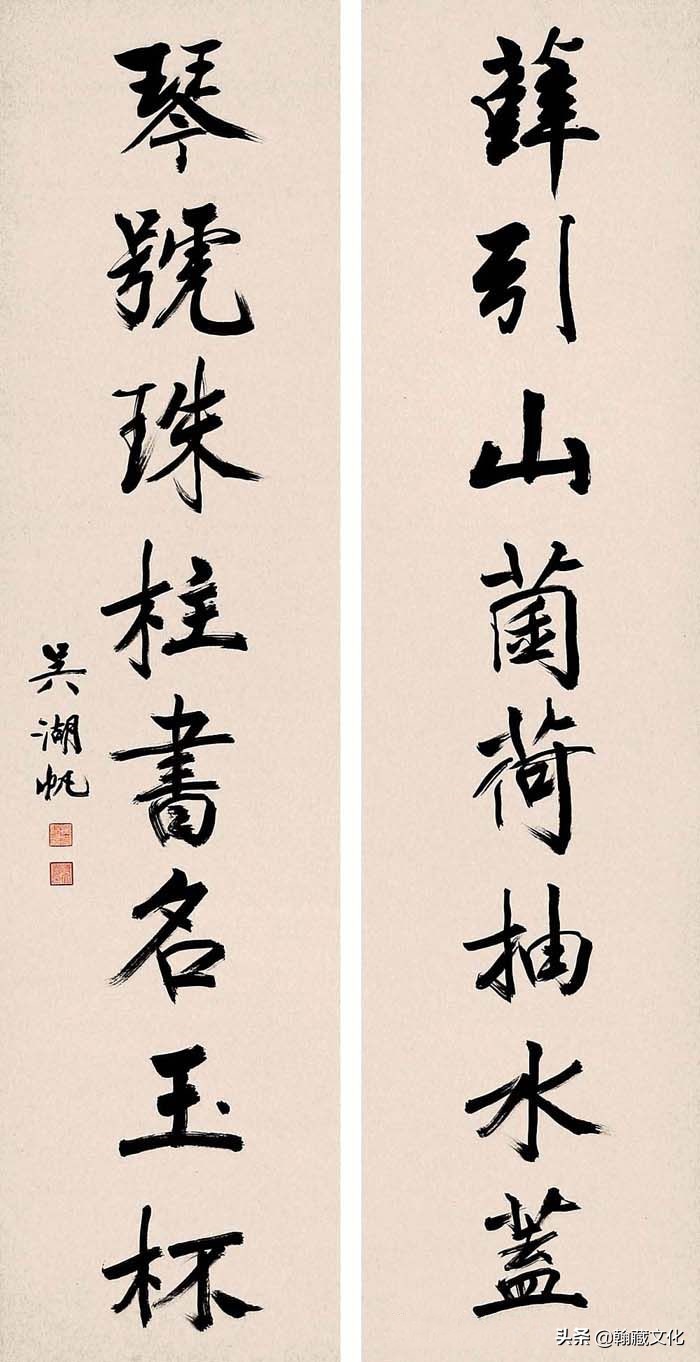 薜引山菌荷抽水蓋
琴號珠柱書名玉杯
吳湖帆
头条 @翰藏文化